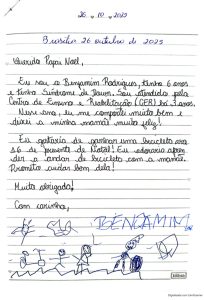 26 . 10 . 2025
Brasília 26 outubro de 2025
Querido Papai Noel,
Eu sou o Benjamim Rodrigues, tenho 6 anos
e tenho Síndrome de Down. Sou atendido pelo
Centro de Ensino e Reabilitação (CER) há 3 anos.
Nesse ano, eu me comportei muito bem e
deixei a minha mamãe muito feliz!
Eu gostaria de ganhar uma bicicleta aro
16 de presente de Natal! Eu adoraria apren
der a andar de bicicleta com a mamãe.
Prometo cuidar bem dela!
Muito obrigado!
Com carinho,
BENJAMIM